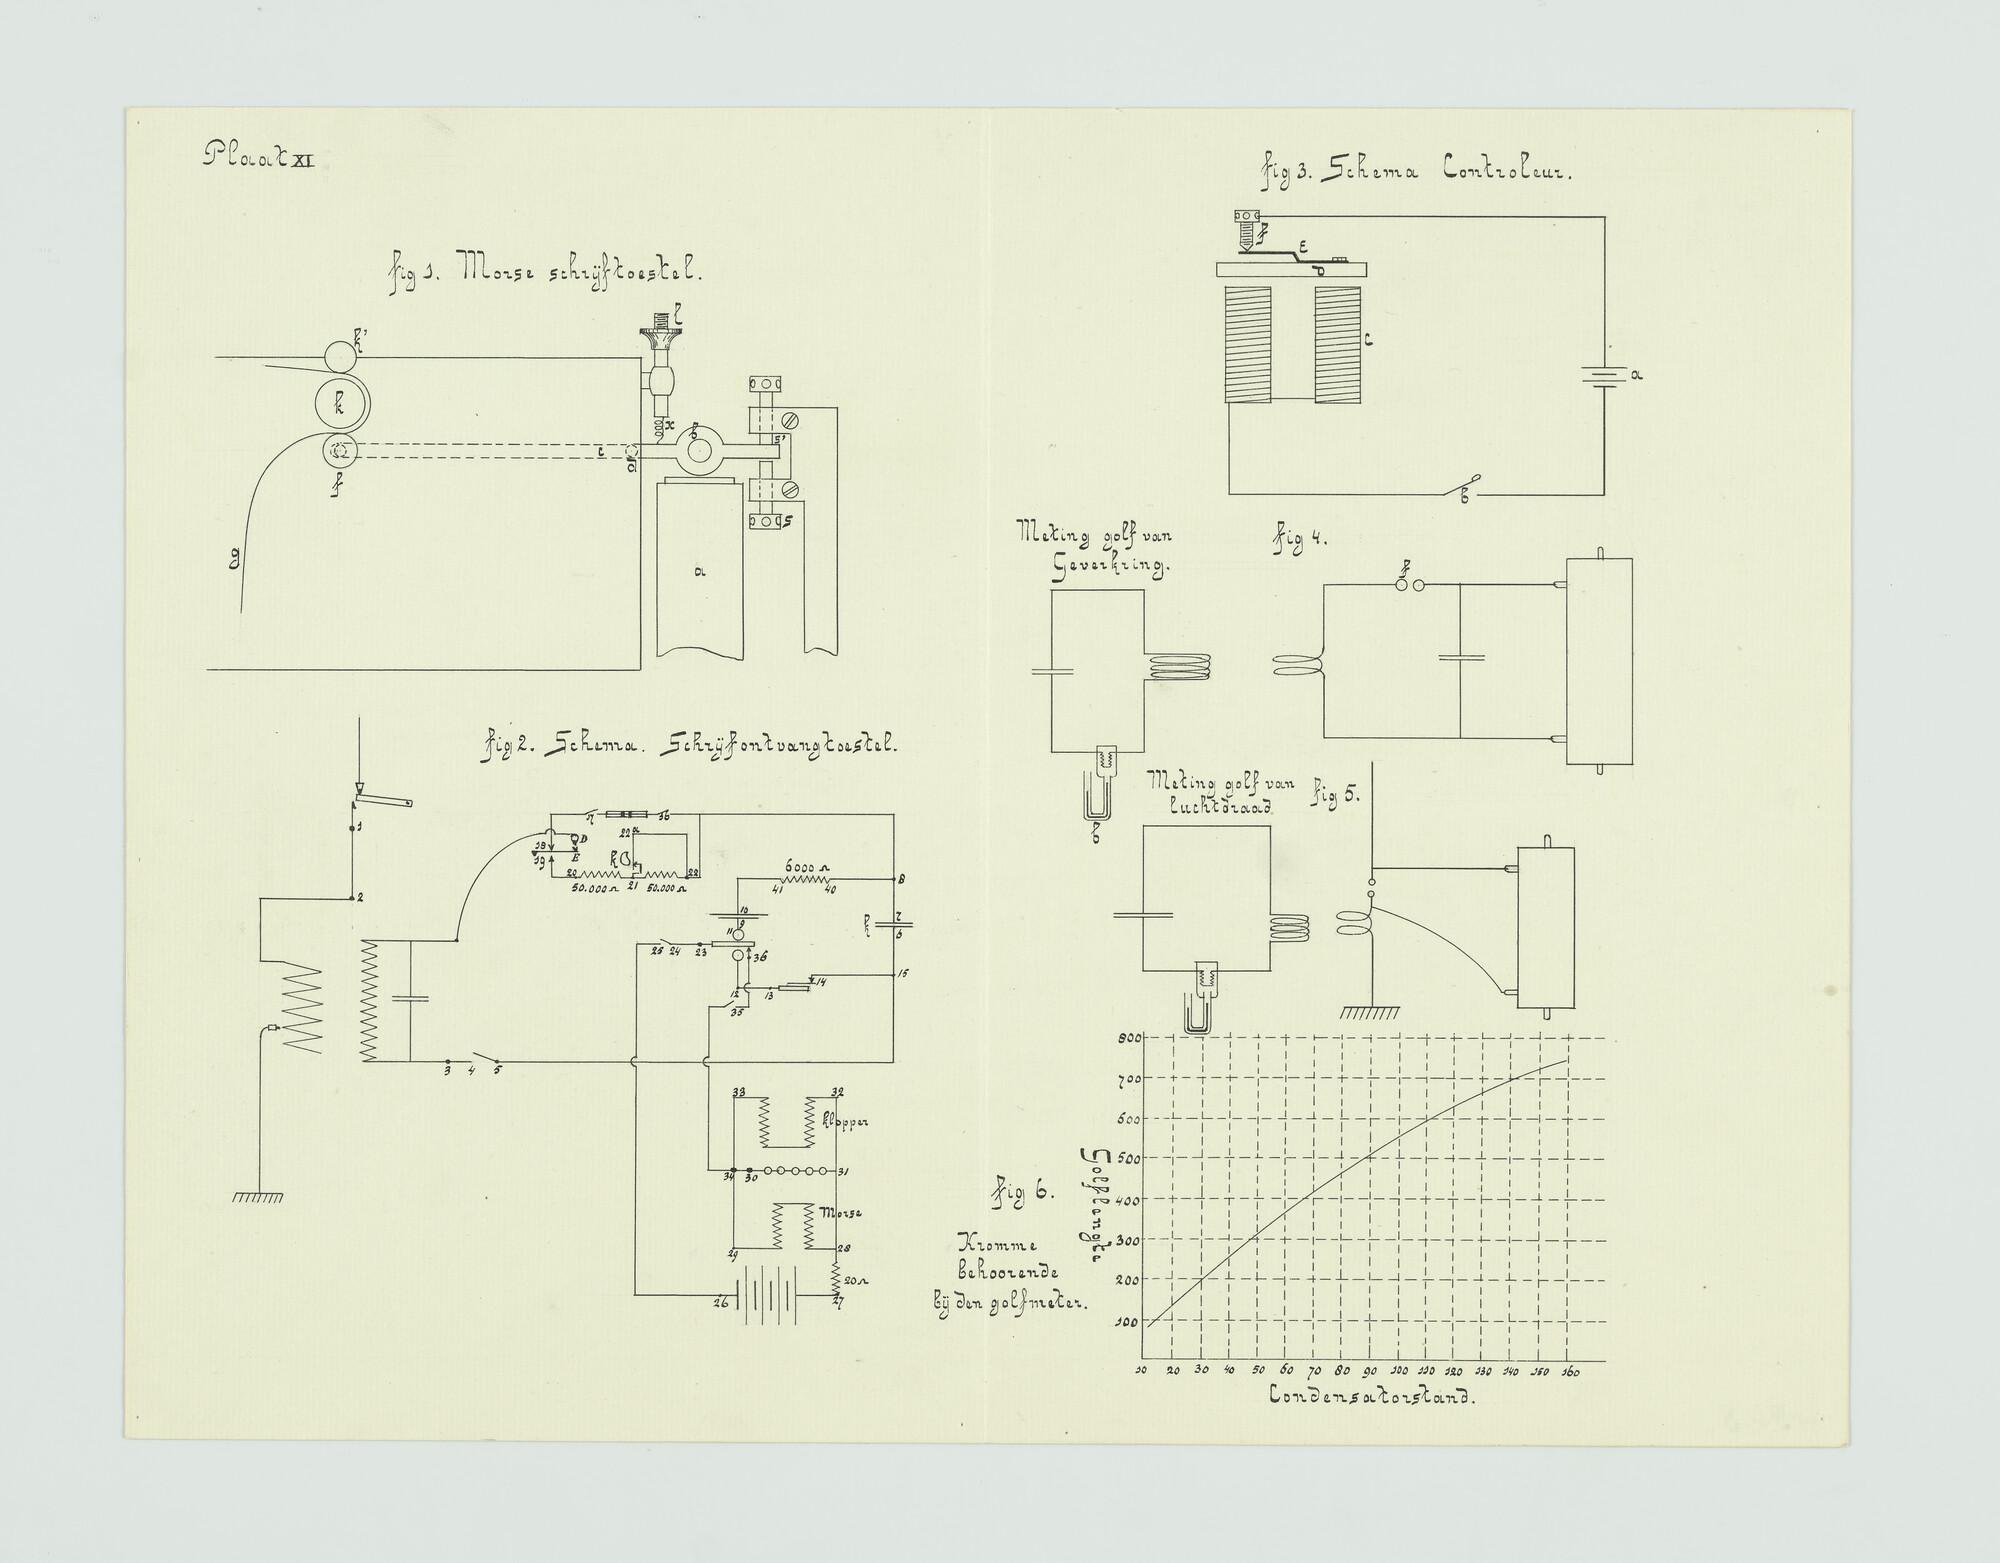 Plaat XI
fig 1. Morse schrijftoestel.
k'
l
k
x
b
c
s'
o
f
s
g
a
fig 2. Schema. Schrijfontvangtoestel.
1
2
17
16
18
D
22 a
19
E
k
20
21
22
50.000 Ω
50.000 Ω
6000 Ω
41
40
8
10
9
7
k
6
11
25
24
23
36
12
13
14
15
35
3
4
5
33
32
klopper
34
30
31
Morse
29
28
20 Ω
26
27
fig 3. Schema Controleur.
f
E
D
C
a
b
Meting golf van
Geverkring.
fig 4.
f
b
Meting golf van
luchtdraad
fig 5.
fig 6.
Kromme
behoorende
bij den golfmeter.
Golflengte
800
700
600
500
400
300
200
100
10 20 30 40 50 60 70 80 90 100 110 120 130 140 150 160
Condensatorstand.